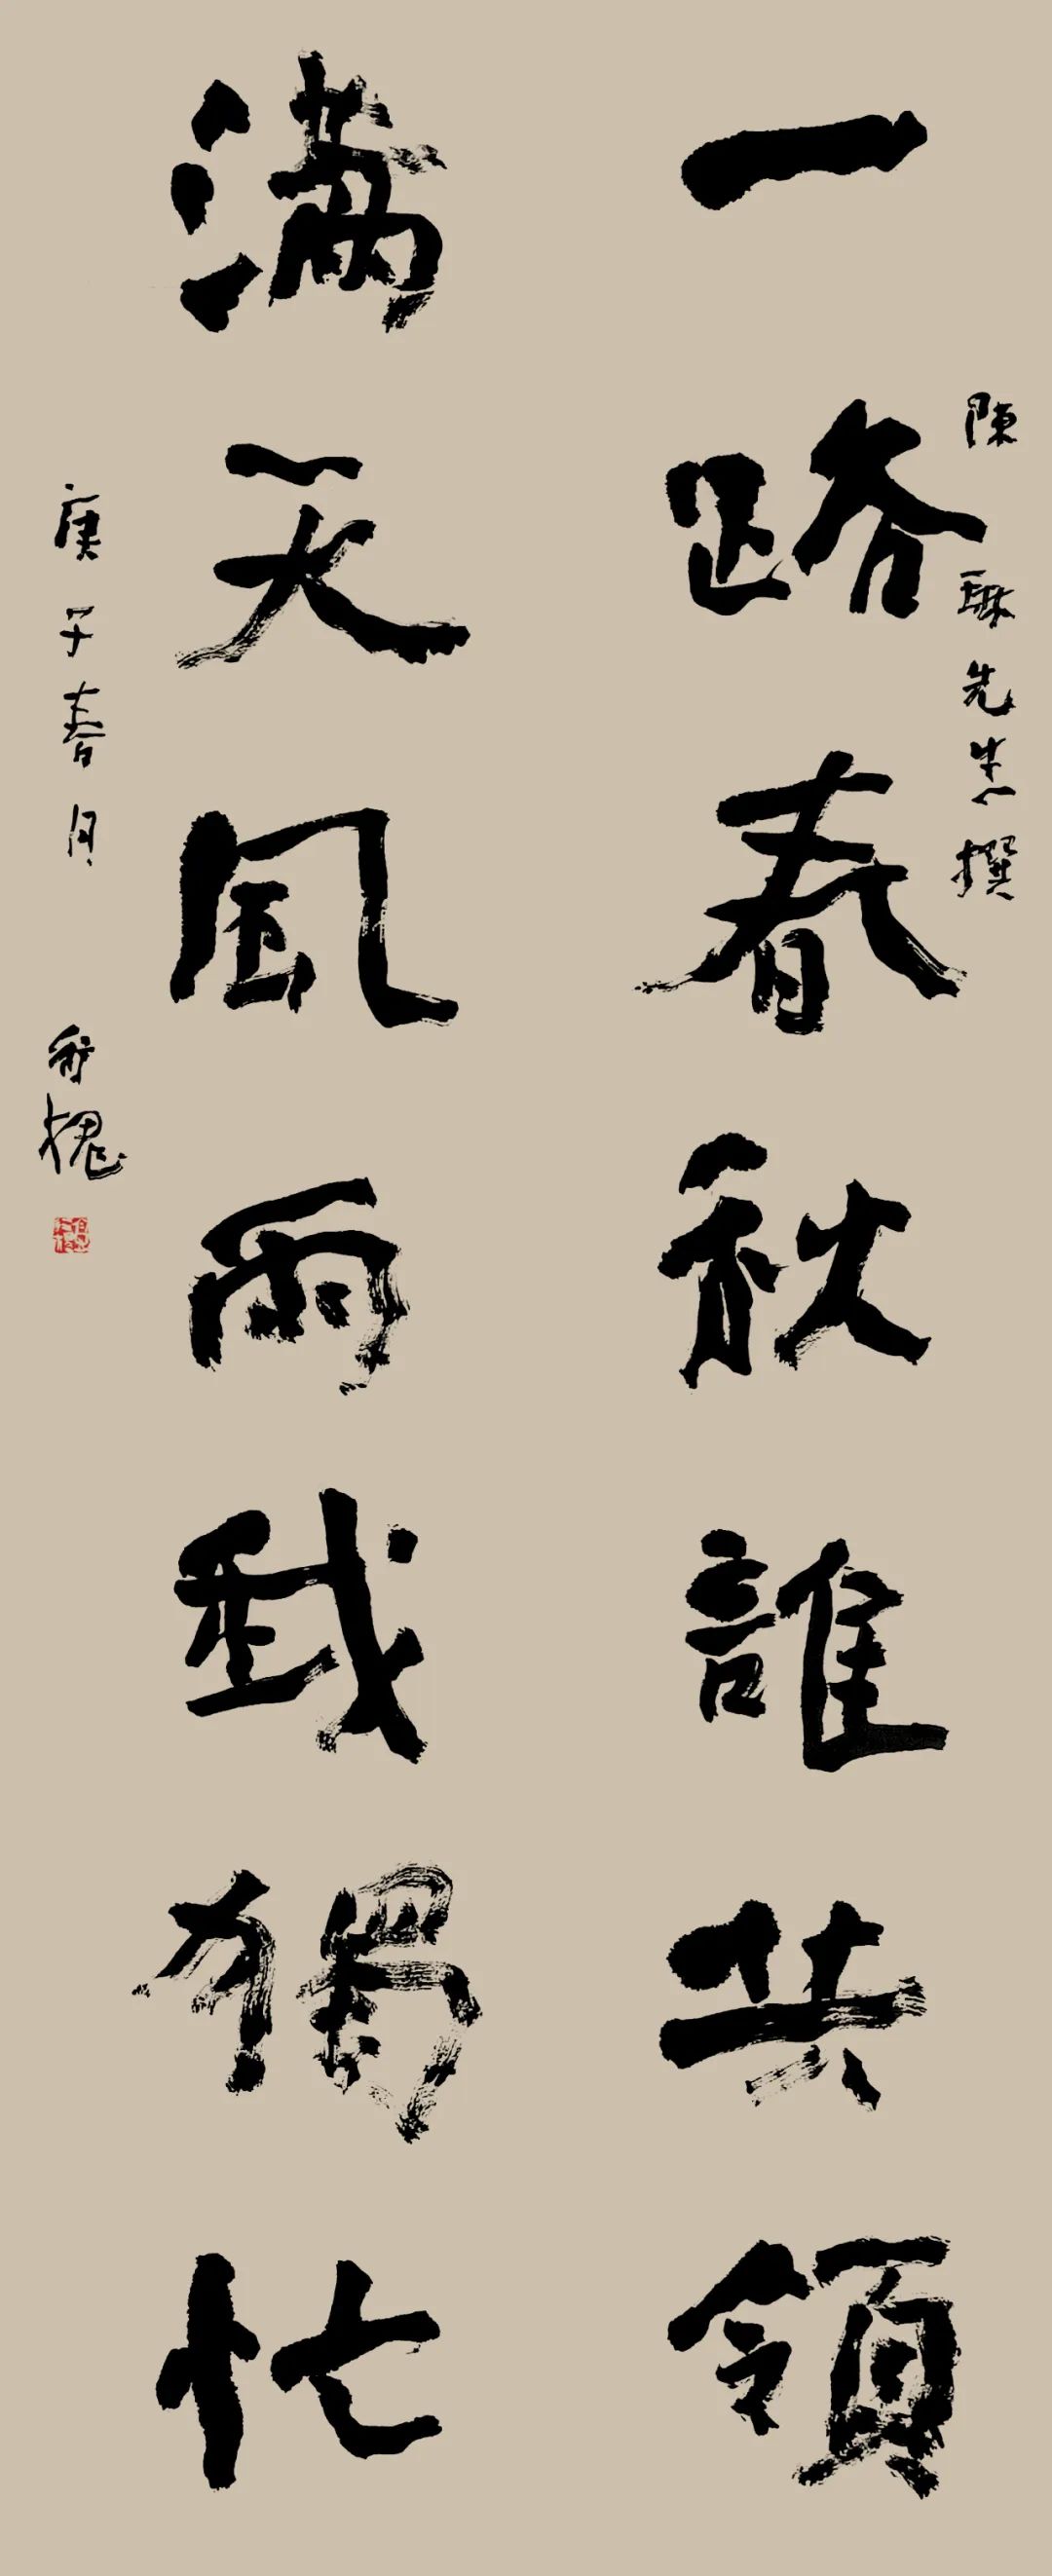 一路春秋誰共領
陳 先生撰
滿天風雨我獨忙
庚子春月
槐